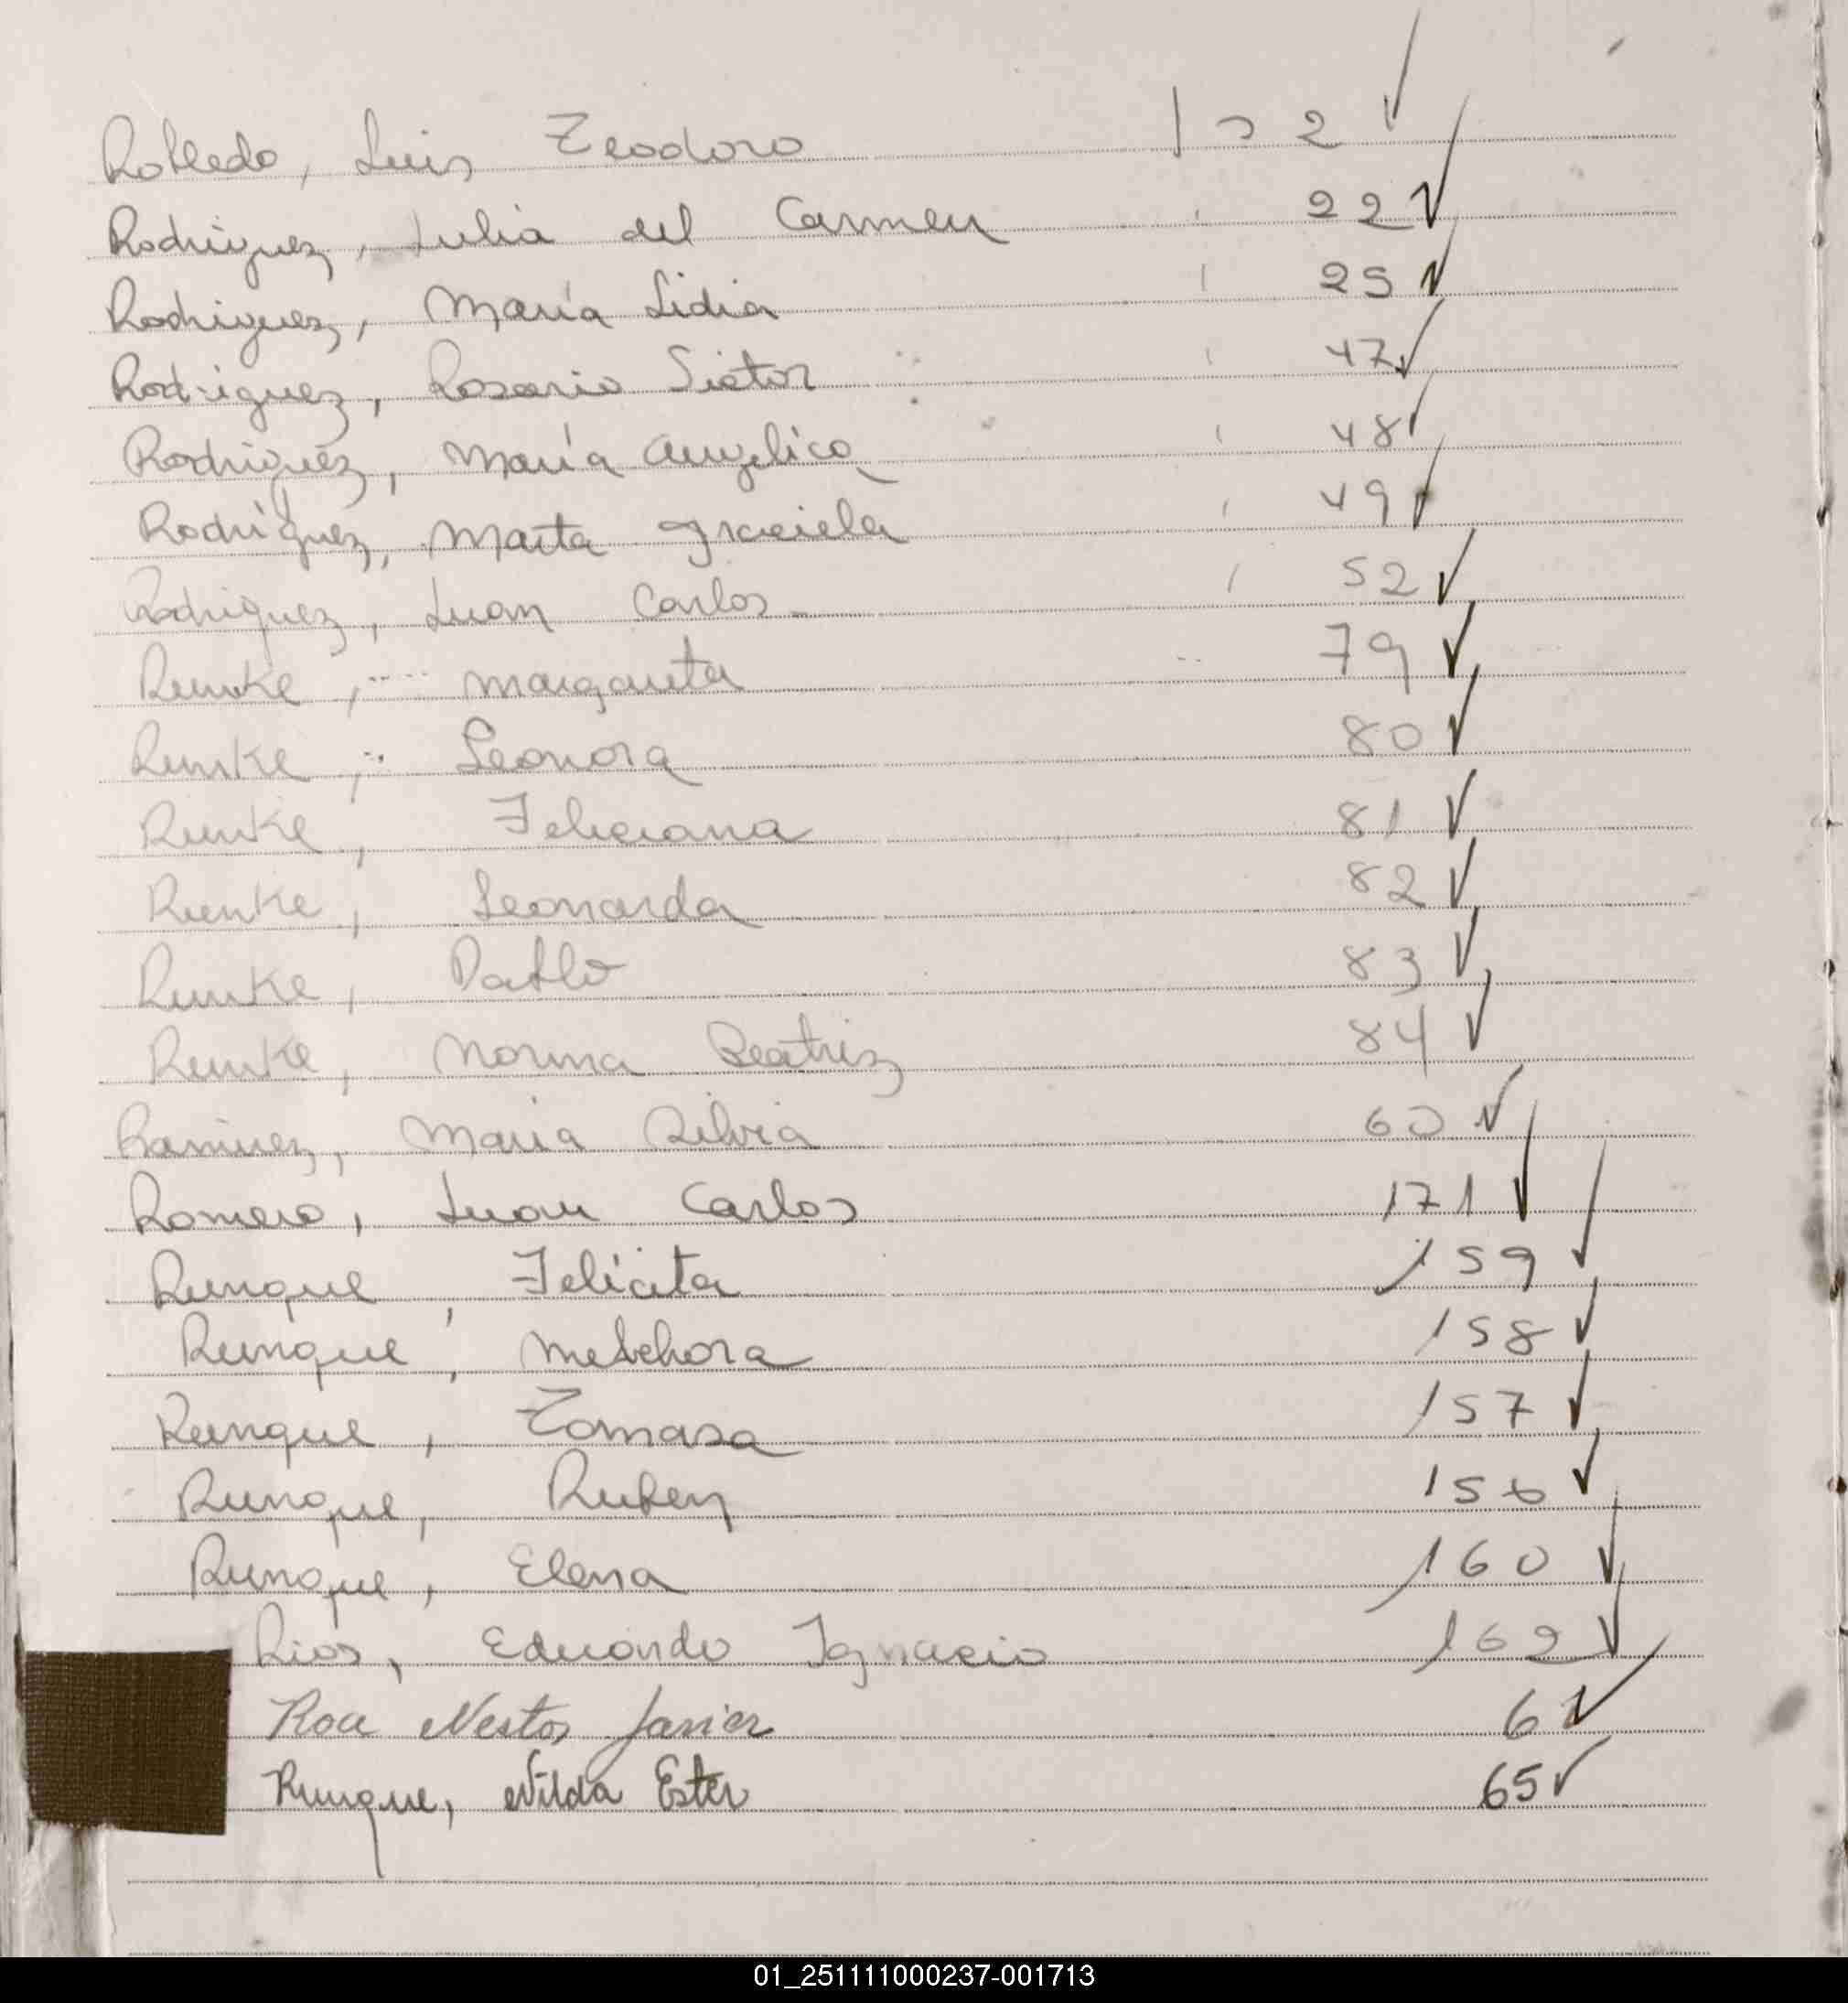 Robledo, Luis Teodoro 1 2 ✓
Rodriguez, Julia del Carmen 22 ✓
Rodriguez, María Lidia 25 ✓
Rodriguez, Rosario Sixtor 47 ✓
Rodriguez, María Angelica 48 ✓
Rodríguez, Marta Graciela 49 ✓
Rodriguez, Juan Carlos 52 ✓
Runke, Margarita 79 ✓
Runke, Leonora 80 ✓
Runke, Feliciana 81 ✓
Runke, Leonarda 82 ✓
Runke, Pablo 83 ✓
Runke, Norma Beatriz 84 ✓
Ramirez, María Silvia 60 ✓
Romero, Juan Carlos 171 ✓
Runque, Felicita 159 ✓
Runque, Melchora 158 ✓
Runque, Tomasa 157 ✓
Runque, Ruben 156 ✓
Runque, Elena 160 ✓
Rios, Eduardo Ignacio 162 ✓
Roa Nestor Javier 6 ✓
Runque, Nilda Ester 65 ✓
01_251111000237-001713